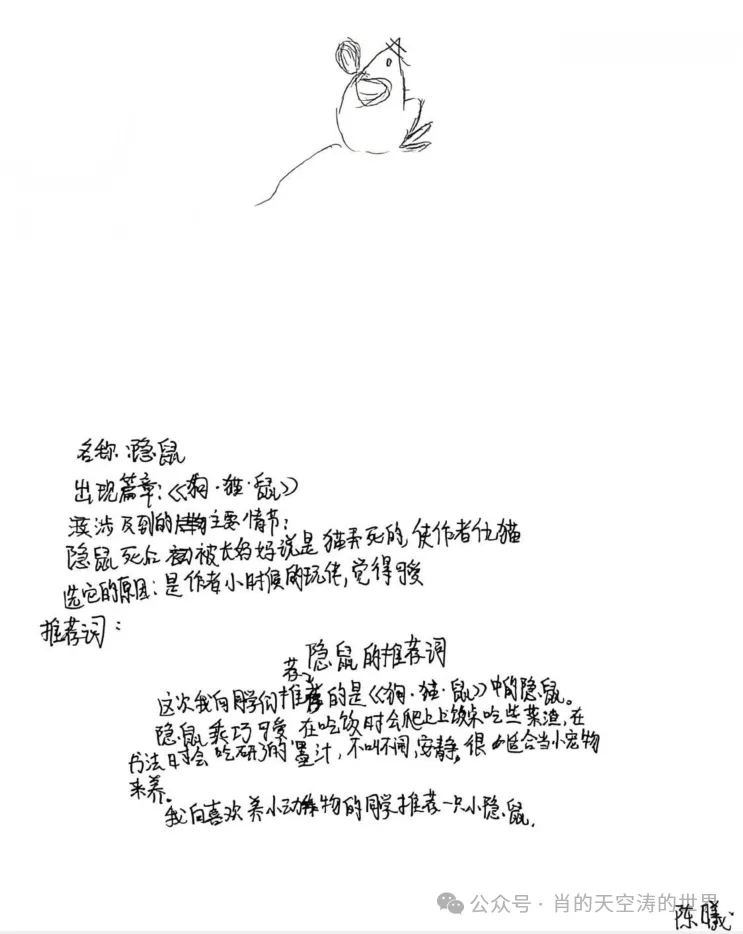 名称:隐鼠
出现篇章:《狗·猫·鼠》
没涉及到的主要情节:
隐鼠死后 被长妈妈说是猫弄死的,使作者仇猫
选它的原因:是作者小时候的玩伴,觉得可爱
推荐词:
隐鼠的推荐词
这次我向同学们推荐的是《狗·猫·鼠》中的隐鼠。
隐鼠乖巧可爱 在吃饭时会爬上上饭桌吃些菜渣,在
书法时会吃研了的墨汁,不叫不闹,安静。很 适合当小宠物
来养。
我向喜欢养小动物的同学推荐一只小隐鼠.
公众号·肖的天空涛的世界
陈曦